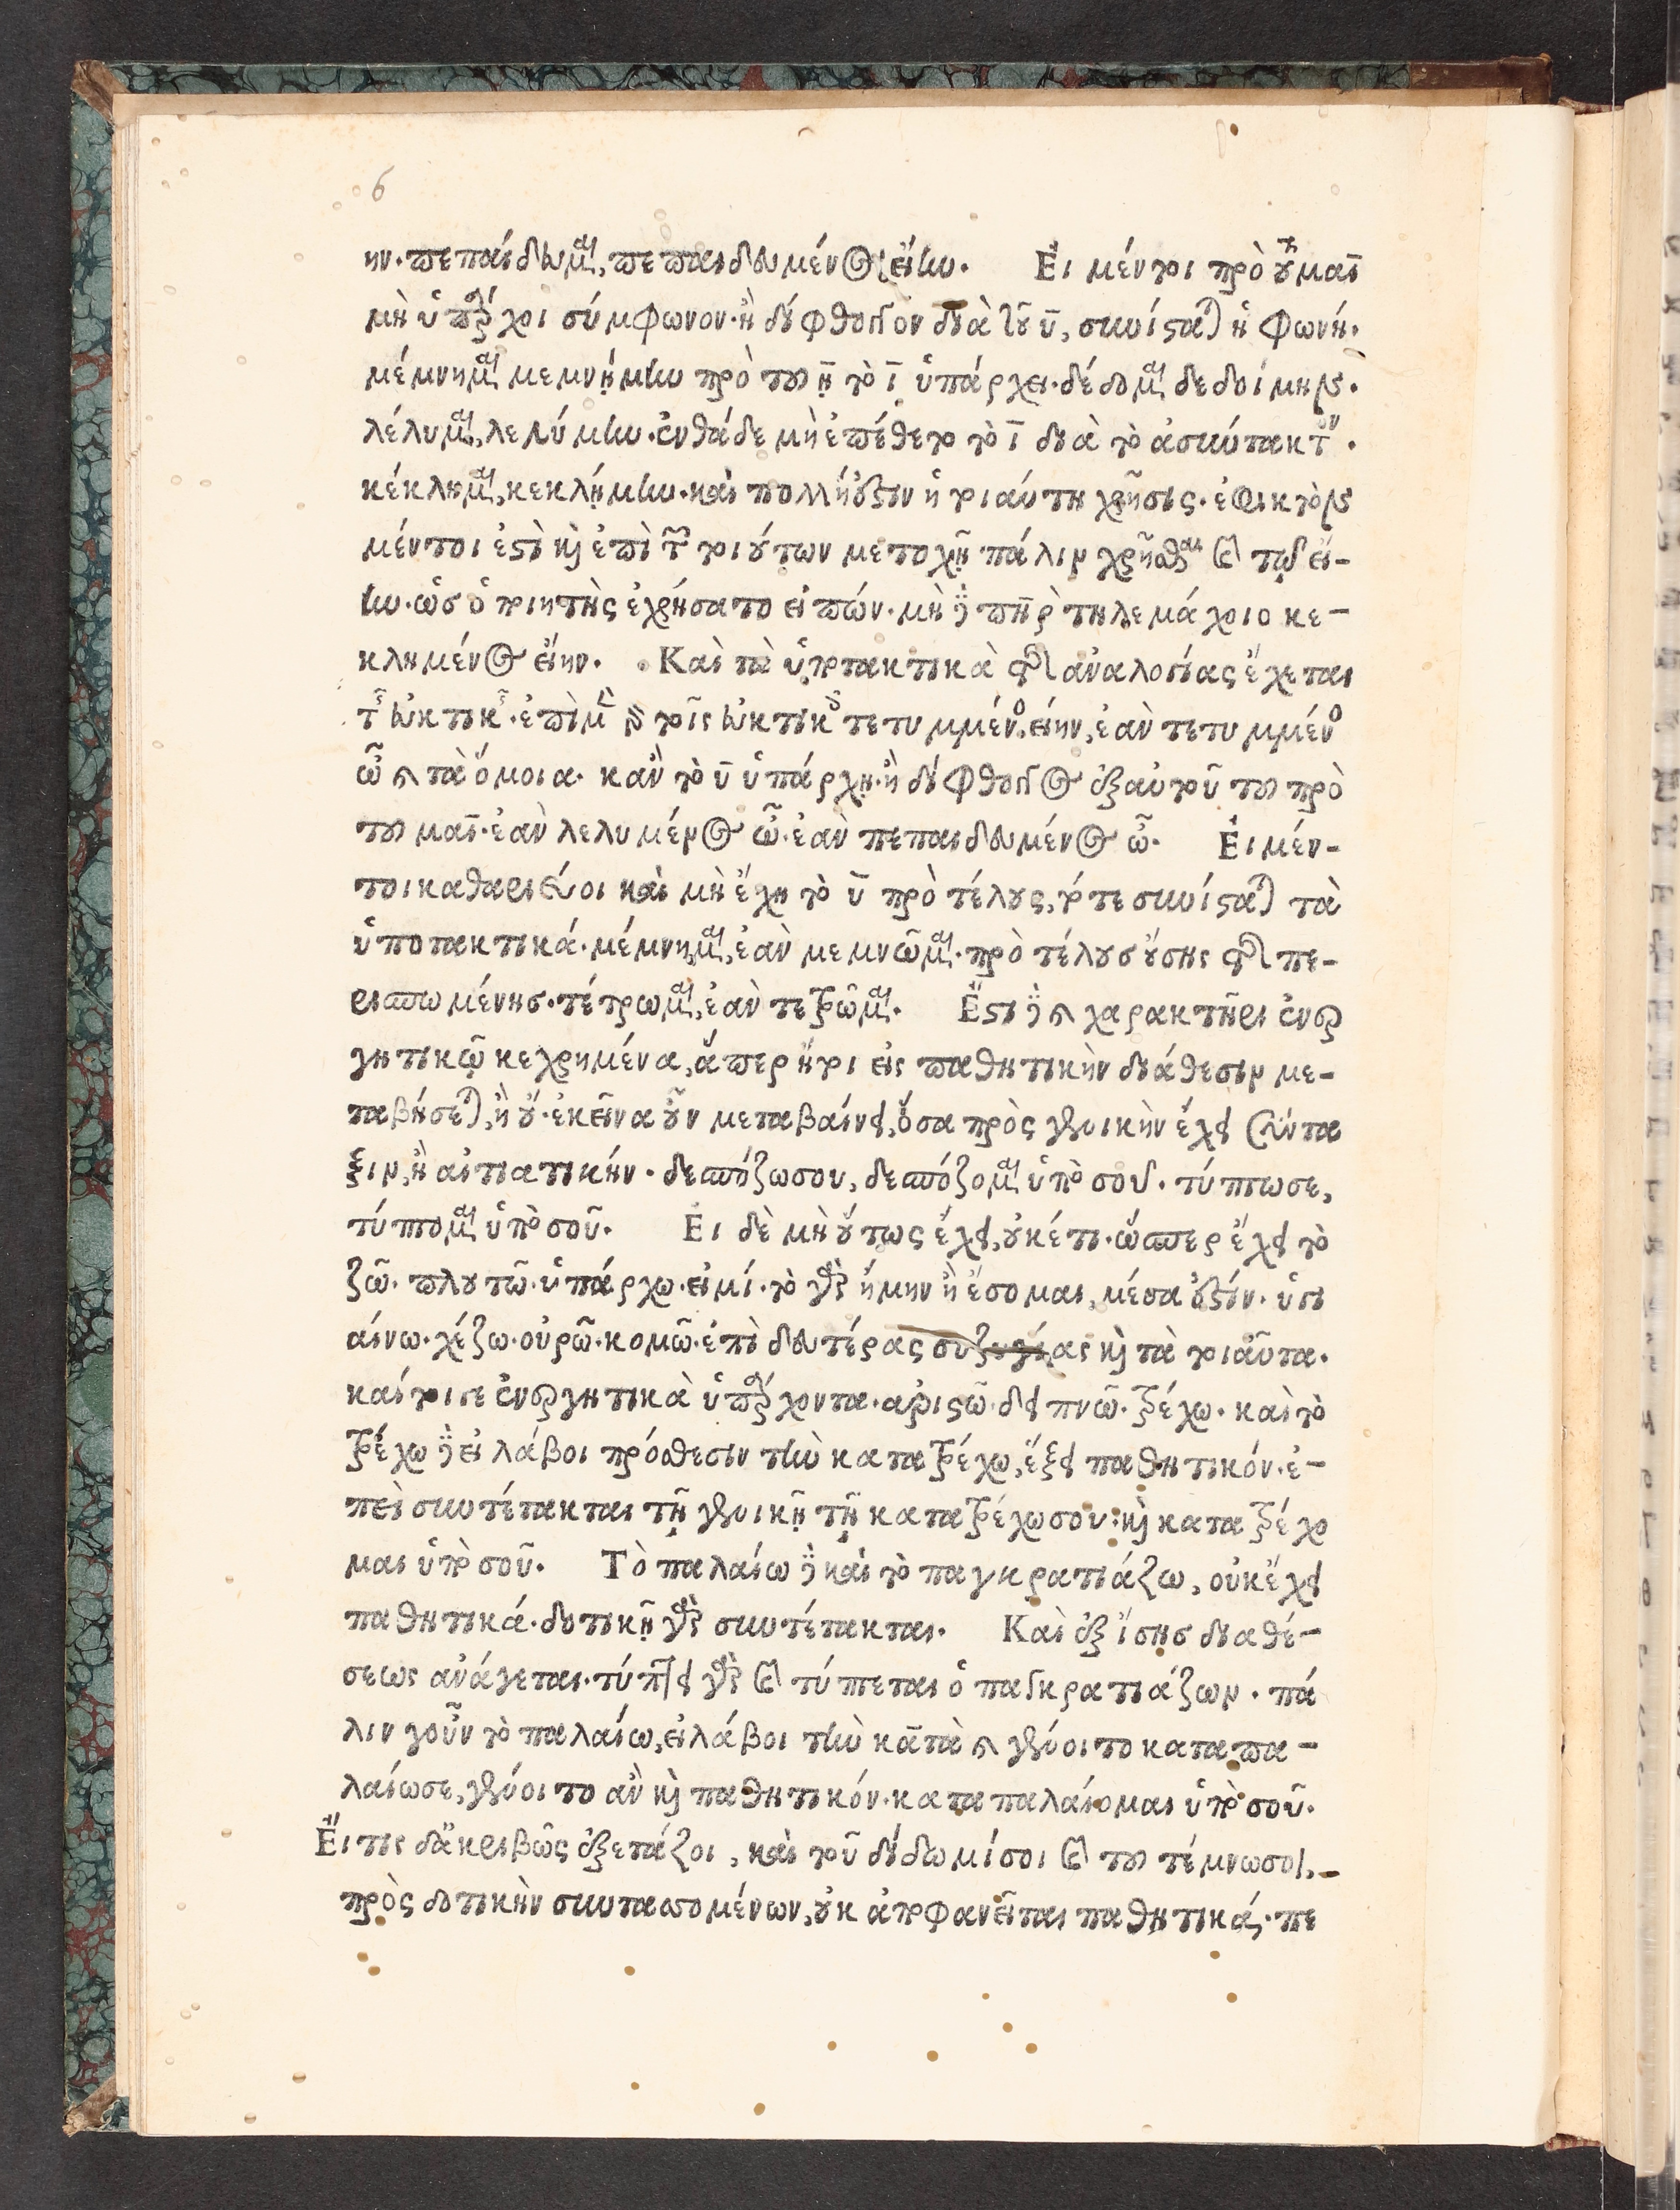 6
ην· πεπαίδευμαι, πεπαιδευμένος εἴην. Εἰ μέντοι πρὸ τοῦ μαῑ
μὴ ὑπάρχοι σύμφωνον· ἢ δίφθογγον διὰ τοῦ ῡ, συνίσταται ἡ φωνή.
μέμνημαι μεμνῄμην πρὸ τοῦ η̄ τὸ ῑ ὑπάρχει. δέδομαι δεδοίμην.
λέλυμαι, λελύμην. ἐνθάδε μὴ ἐπέθετο τὸ ῑ διὰ τὸ ἀσύντακτον.
κέκλημαι, κεκλῄμην. καὶ πολλή ἐστιν ἡ τοιαύτη χρῆσις. ἐφικτὸν
μέντοι ἐστὶ καὶ ἐπὶ τῶν τοιούτων μετοχῇ πάλιν χρῆσθαι καὶ τῷ εἴ-
ην. ὡσ ὁ ποιητὴς ἐχρήσατο εἰπών. μὴ δὲ πατὴρ τηλεμάχοιο κε-
κλημένος εἴην. Καὶ τὰ ὑποτακτικὰ τῆς ἀναλογίας ἔχεται
τῆς εὐκτικῆς. ἐπὶ μὲν γὰρ τοῖς εὐκτικοῖς τετυμμένος εἴην, ἐὰν τετυμμένος
ὦ καὶ τὰ ὅμοια. κἂν τὸ ῡ ὑπάρχῃ· ἢ δίφθογγος ἐξ αὐτοῦ τοῦ πρὸ
τοῦ μαῑ. ἐὰν λελυμένος ὦ. ἐὰν πεπαιδευμένος ὦ. Εἰ μέν-
τοι καθαριεύοι καὶ μὴ ἔχῃ τὸ ῡ πρὸ τέλους, τότε συνίσταται τὰ
ὑποτακτικά. μέμνημαι, ἐὰν μεμνῶμαι. πρὸ τέλουσ οὔσης τῆς πε-
ρισπωμένησ. τέτρωμαι, ἐὰν τετρῶμαι. Ἔστι δὲ καὶ χαρακτῆρι ἐνερ
γητικῷ κεχρημένα, ἅπερ ἤτοι εἰς παθητικὴν διάθεσιν με-
ταβήσεται, ἢ οὔ. ἐκεῖνα οὖν μεταβαίνει, ὅσα πρὸς γενικὴν ἔχει σύντα
ξιν, ἢ αἰτιατικήν. δεσπόζω σου, δεσπόζομαι ὑπὸ σοῦ. τύπτω σε,
τύπτομαι ὑπὸ σοῦ. Εἰ δὲ μὴ οὕτως ἔχει, οὐκέτι. ὥσπερ ἔχει τὸ
ζῶ. πλουτῶ. ὑπάρχω. εἰμί. τὸ γὰρ ἤμην ἢ ἔσομαι, μέσα ἐστίν. ὑγι
αίνω. χέζω. οὐρῶ. κομῶ. ἐπὶ δευτέρας συζυγίας καὶ τὰ τοιαῦτα.
καίτοιγε ἐνεργητικὰ ὑπάρχοντα. ἀριστῶ. δειπνῶ. τρέχω. καὶ τὸ
τρέχω δὲ εἰ λάβοι πρόθεσιν τὴν κατα τρέχω, ἕξει παθητικόν. ἐ-
πεὶ συντέτακται τῇ γενικῇ τῇ κατατρέχω σου· καὶ κατατρέχο
μαι ὑπὸ σοῦ. Τὸ παλαίω δὲ καὶ τὸ παγκρατιάζω, οὐκ ἔχει
παθητικά. δοτικῇ γὰρ συντέτακται. Καὶ ἐξ ἴσησ διαθέ-
σεως ἀνάγεται. τύπτει γὰρ καὶ τύπτεται ὁ παγκρατιάζων. πά
λιν γοῦν τὸ παλαίω, εἰ λάβοι τὴν κατὰ καὶ γένοιτο καταπα-
λαίω σε, γένοιτο ἂν καὶ παθητικόν. καταπαλαίομαι ὑπὸ σοῦ.
Εἴ τις δ' ἀκριβῶς ἐξετάζοι, καὶ τοῦ δίδωμί σοι καὶ τοῦ τέμνω σοι,
πρὸς δοτικὴν συντασσομένων, οὐκ ἀποφανεῖται παθητικά. πε